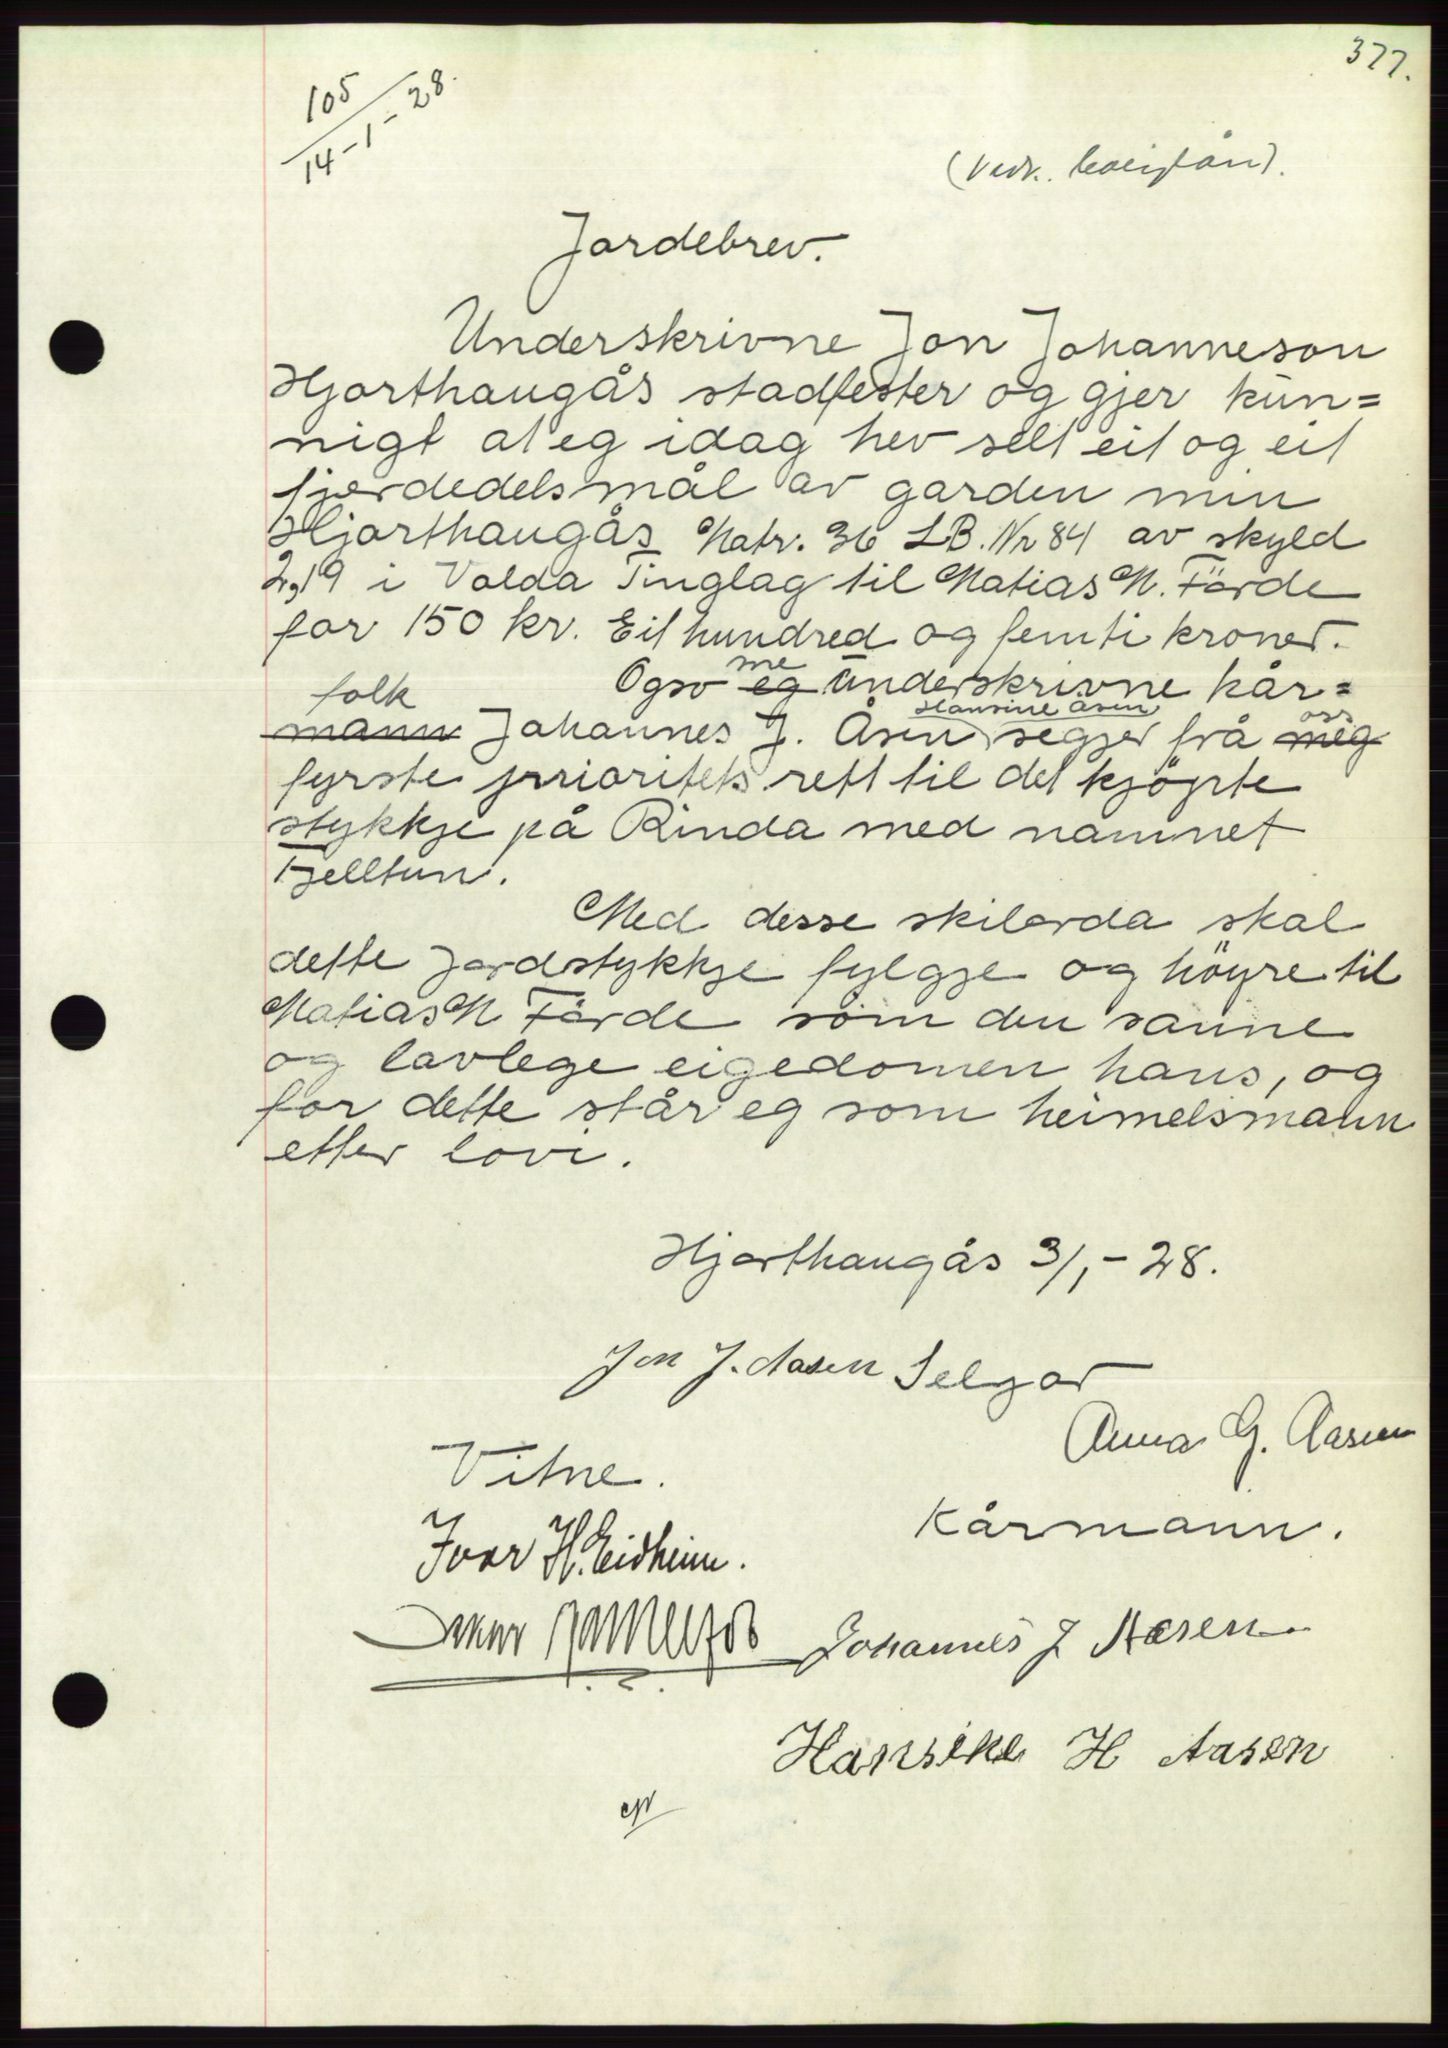 377.
105
14-1-28.
(Vedr. boliglån).
Jordebrev.
Underskrivne Jon Johanneson
Hjorthaugås stadfester og gjer kun=
nigt at eg idag hev selt eit og eit
fjerdedelsmål av garden min
Hjorthaugås Matr. 36 LB. Nr 84 av skyld
2,19 i Volda Tinglag til Matias M. Förde
for 150 kr. Eit hundred og femti kroner.
me
Ogso eg underskrivne kår=
folk Hansine Åsen oss
mann Johannes J. Åsen, segjer frå meg
fyrste prioritets rett til det kjöpte
stykkje på Rinda med namnet
Fjelltun.
Med desse skilorda skal
dette jordstykkje fylgje og höyre til
Matias M Förde som den sanne
og lovlege eigedomen hans, og
for dette står eg som heimelsmann
etter lovi.
Hjorthaugås 3/1-28.
Jon J. Aasen Seljar
Anna G. Aasen
Vitne.
Kårmann.
Ivar H. Eidheim.
Johannes J Aasen
Hansine H Aasen